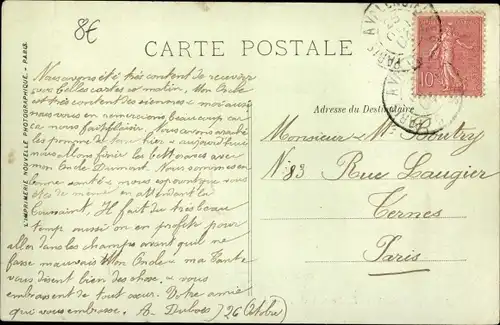 8€
CARTE POSTALE
L'IMPRIMERIE NOUVELLE PHOTOGRAPHIQUE - PARIS.
Nous avons été très content de recevoir
vos belles cartes ce matin. Mon Oncle
est très content des siennes & moi aussi
nous vous en remercions beaucoup car
ça nous fait plaisir. Nous avons
les pommes de terre hier & aujourd'hui
nous allons finir les betteraves avec
mon Oncle Dumont. Nous sommes en
bonne santé & nous espérons que vous
êtes de même en attendant la
Toussaint. Il fait du très beau
temps aussi on en profite pour
aller dans les champs avant qu'il ne
fasse mauvais. Mon Oncle & ma Tante
vous disent bien des choses & nous
embrassent de tout cœur. Votre amie
qui vous embrasse. A. Dubois 26 Octobre
10
Adresse du Destinataire
Monsieur & Mme Boutry
N°83 Rue Laugier
Ternes
Paris